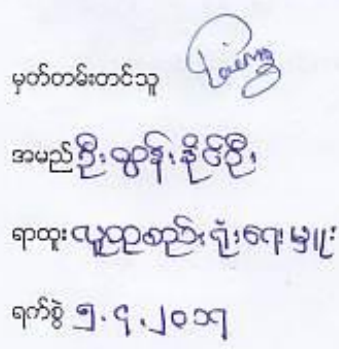 မှတ်တမ်းတင်သူ
အမည် ဦးထွန်းနိုင်ဦး
ရာထူး လူထုစည်းရုံးရေးမှူး
ရက်စွဲ ၅.၄.၂၀၁၇